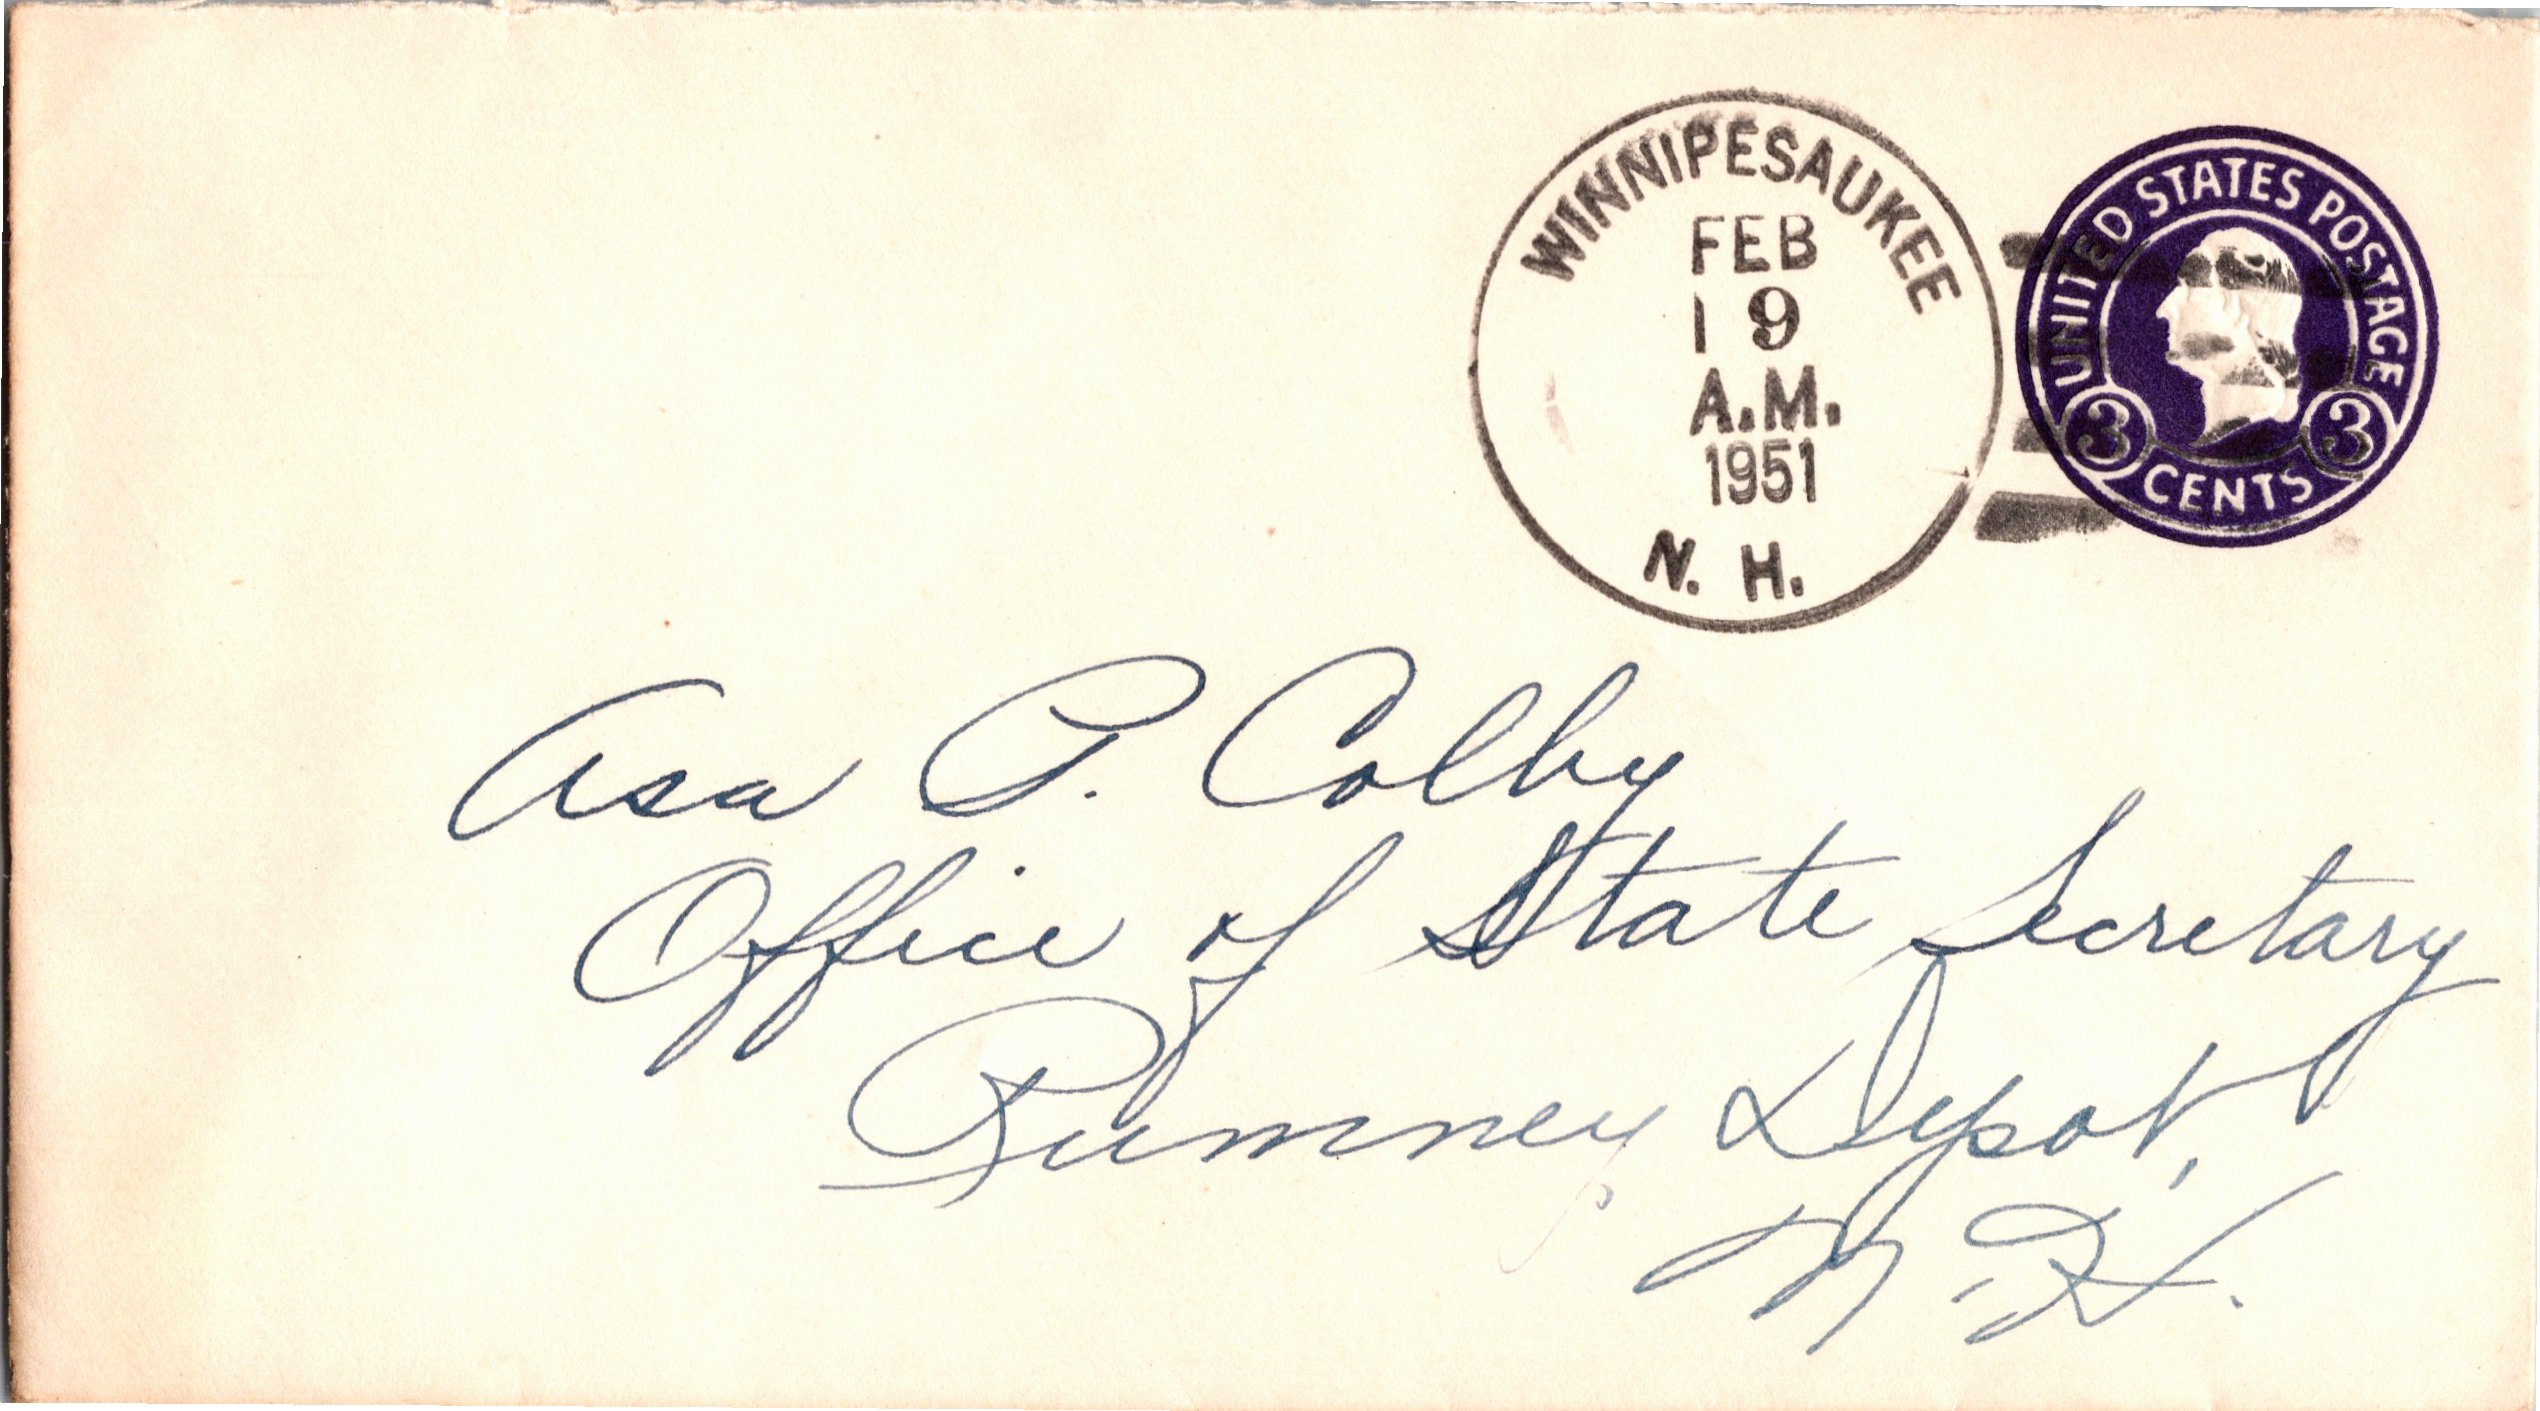 WINNIPESAUKEE
FEB
19
A.M.
1951
N. H.
UNITED STATES POSTAGE
3 3
CENTS
Asa P. Colby
Office of State Secretary
Rumney Depot,
N. H.